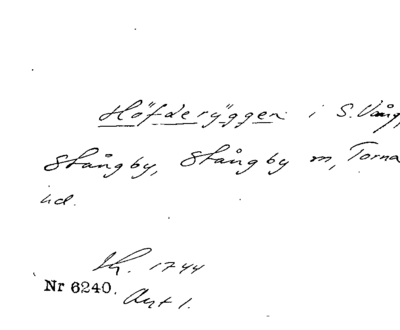 Höfderÿggen i S. Vång,
Stångby, Stångby m, Torna
hd.
1744
Nr 6240. Akt 1.